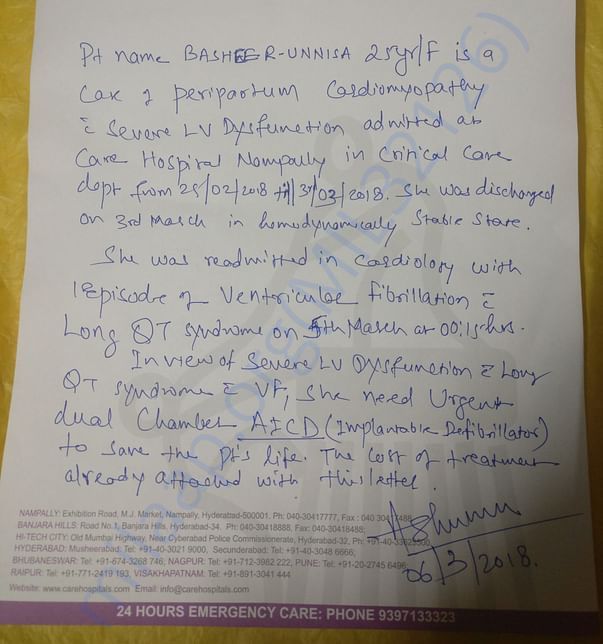 Pt name BASHEER-UNNISA 25yr/F is a
Case of peripartum Cardiomyopathy
c̄ Severe LV Dysfunction admitted at
Care Hospital Nampally in Critical Care
dept from 28/02/2018 till 3rd/03/2018. She was discharged
on 3rd March in hemodynamically Stable State.
She was readmitted in Cardiology with
1 Episode of Ventricular fibrillation c̄
Long QT syndrome on 5th March at 00:15hrs.
In view of Severe LV Dysfunction c̄ Long
QT syndrome c̄ VF, she need Urgent
dual Chamber AICD (Implantable Defibrillator)
to save the pt's life. The cost of treatment
already attached with this letter.
06/3/2018.
NAMPALLY: Exhibition Road, M.J. Market, Nampally, Hyderabad-500001. Ph: 040-30417777, Fax : 040 30417488
BANJARA HILLS: Road No.1, Banjara Hills, Hyderabad-34. Ph: 040-30418888, Fax: 040-30418488;
HI-TECH CITY: Old Mumbai Highway, Near Cyberabad Police Commissionerate, Hyderabad-32, Ph: +91-40-
HYDERABAD: Musheerabad: Tel: +91-40-3021 9000, Secunderabad: Tel: +91-40-3048 6666;
BHUBANESWAR: Tel: +91-674-3268 746; NAGPUR: Tel: +91-712-3982 222, PUNE: Tel: +91-20-2745 6496
RAIPUR: Tel: +91-771-2419 193, VISAKHAPATNAM: Tel: +91-891-3041 444
Website: www.carehospitals.com Email: info@carehospitals.com
24 HOURS EMERGENCY CARE: PHONE 9397133323